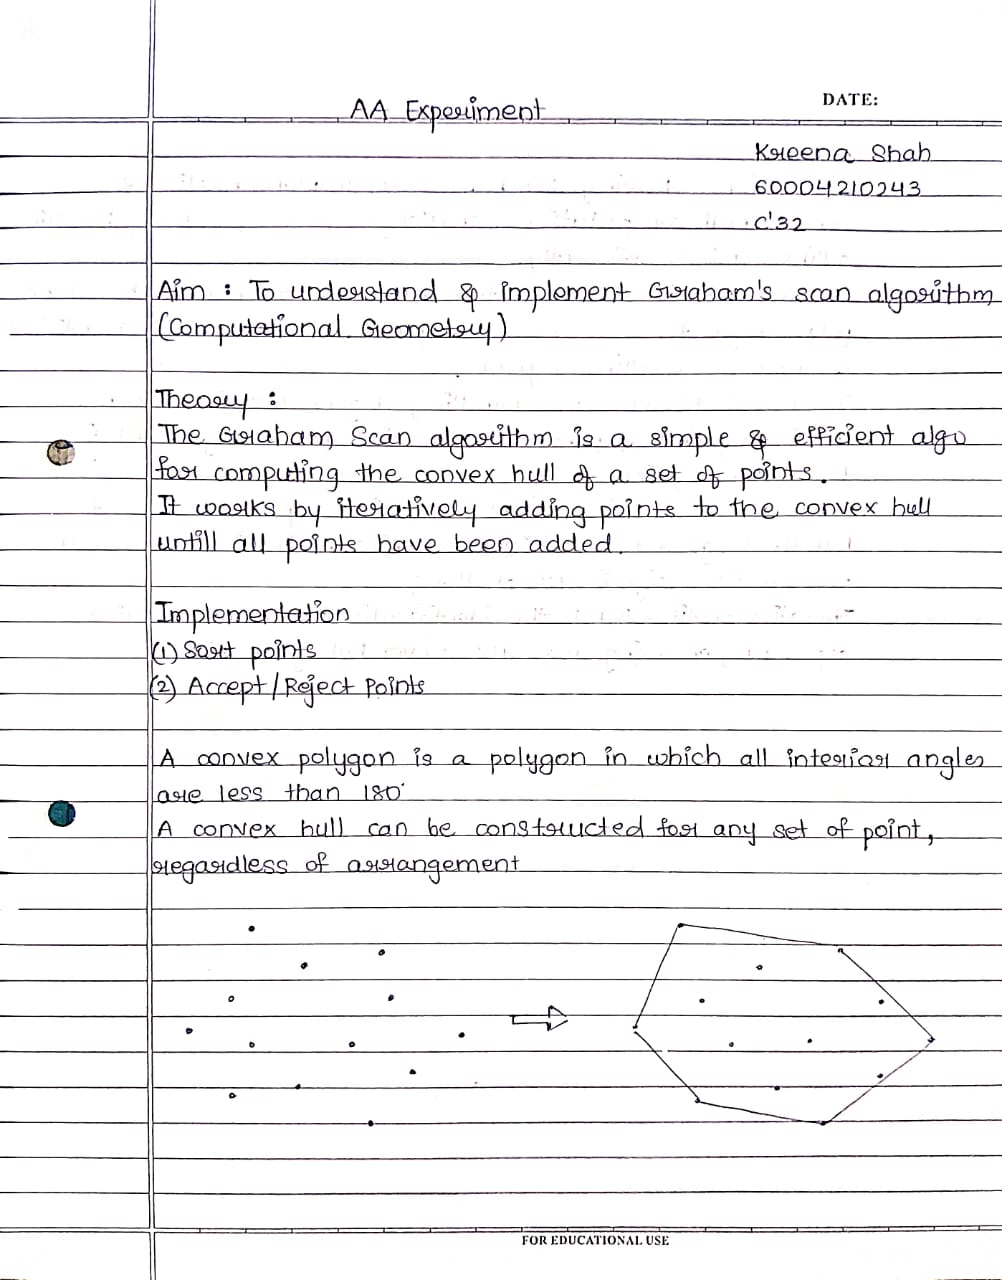 AA Experiment
DATE:
Kreena Shah
60004210243
C'32
Aim : To understand & implement Graham's scan algorithm
(Computational Geometry)
Theory :
The Graham Scan algorithm is a simple & efficient algo
for computing the convex hull of a set of points.
It works by iteratively adding points to the convex hull
untill all points have been added.
Implementation
(1) Sort points
(2) Accept/Reject Points
A convex polygon is a polygon in which all interior angles
are less than 180°
A convex hull can be constructed for any set of point,
regardless of arrangement
FOR EDUCATIONAL USE